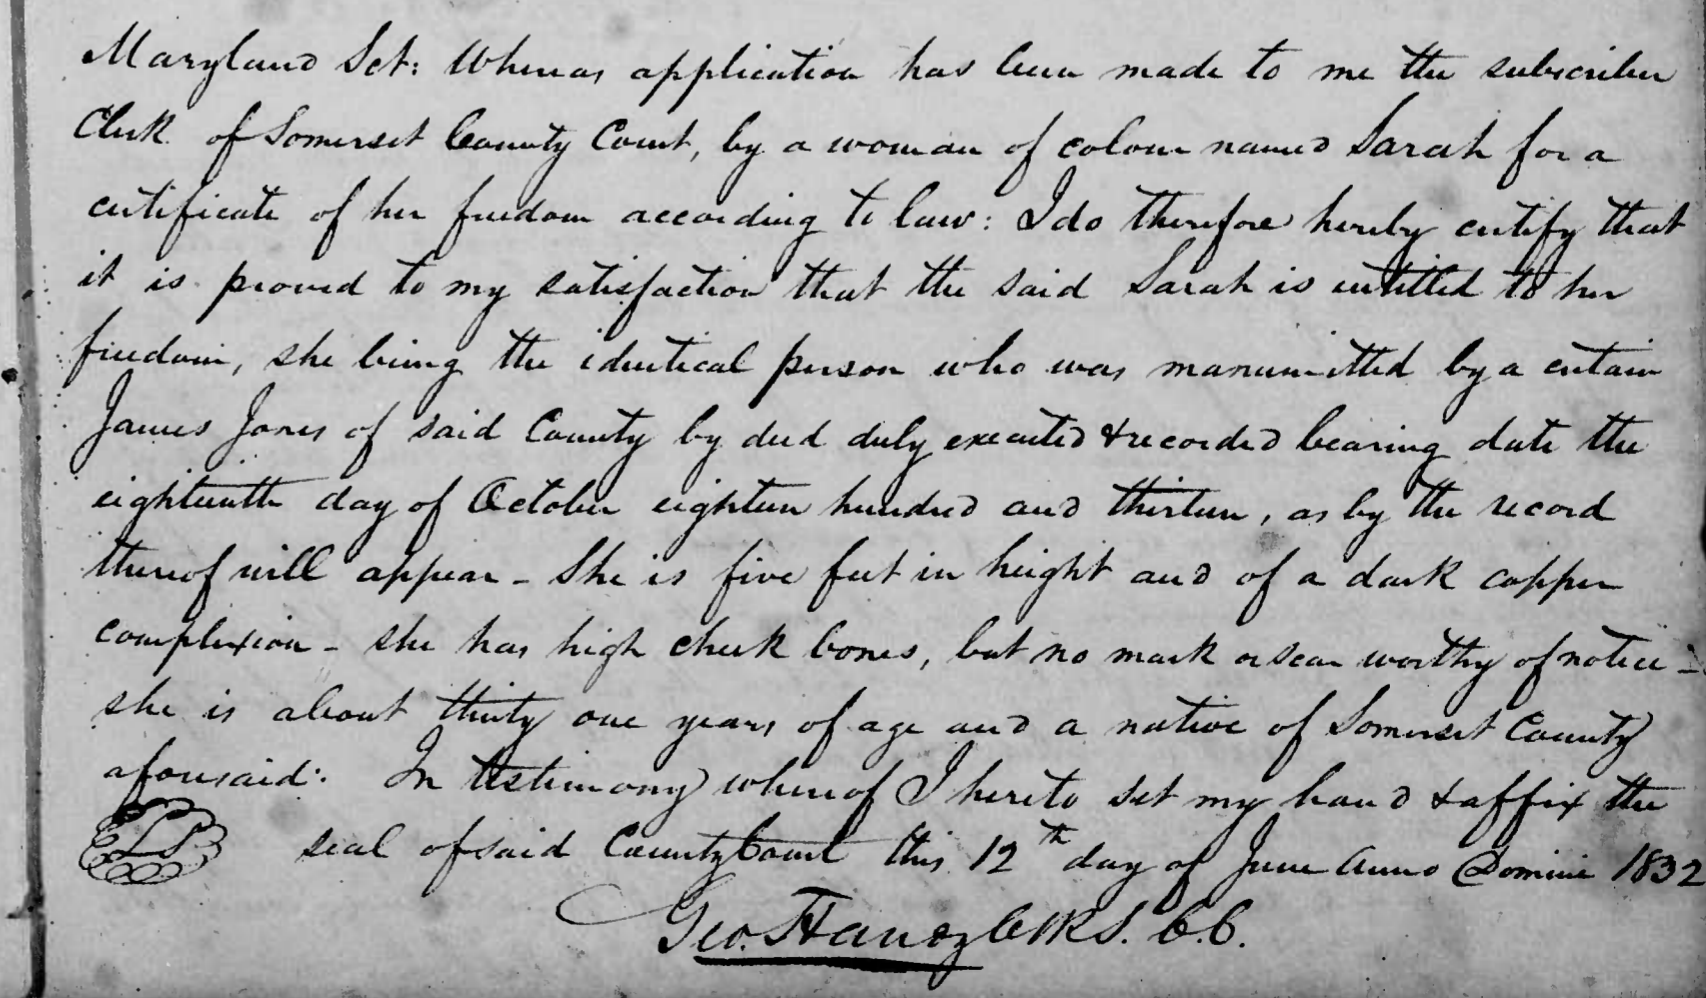 Maryland Sct: Whereas application has been made to me the subscriber
Clerk of Somerset County Court, by a woman of colour named Sarah for a
certificate of her freedom according to law: I do therefore hereby certify that
it is proved to my satisfaction that the said Sarah is entitled to her
freedom, she being the identical person who was manumitted by a certain
James Jones of said County by deed duly executed & recorded bearing date the
eighteenth day of October eighteen hundred and thirteen, as by the record
thereof will appear - She is five feet in height and of a dark copper
complexion - she has high cheek bones, but no mark or scar worthy of notice -
she is about thirty one years of age and a native of Somerset County
aforesaid: In testimony whereof I hereto set my hand & affix the
LS seal of said County Court this 12th day of June Anno Domini 1832
Geo. Handy Clk S. C. C.